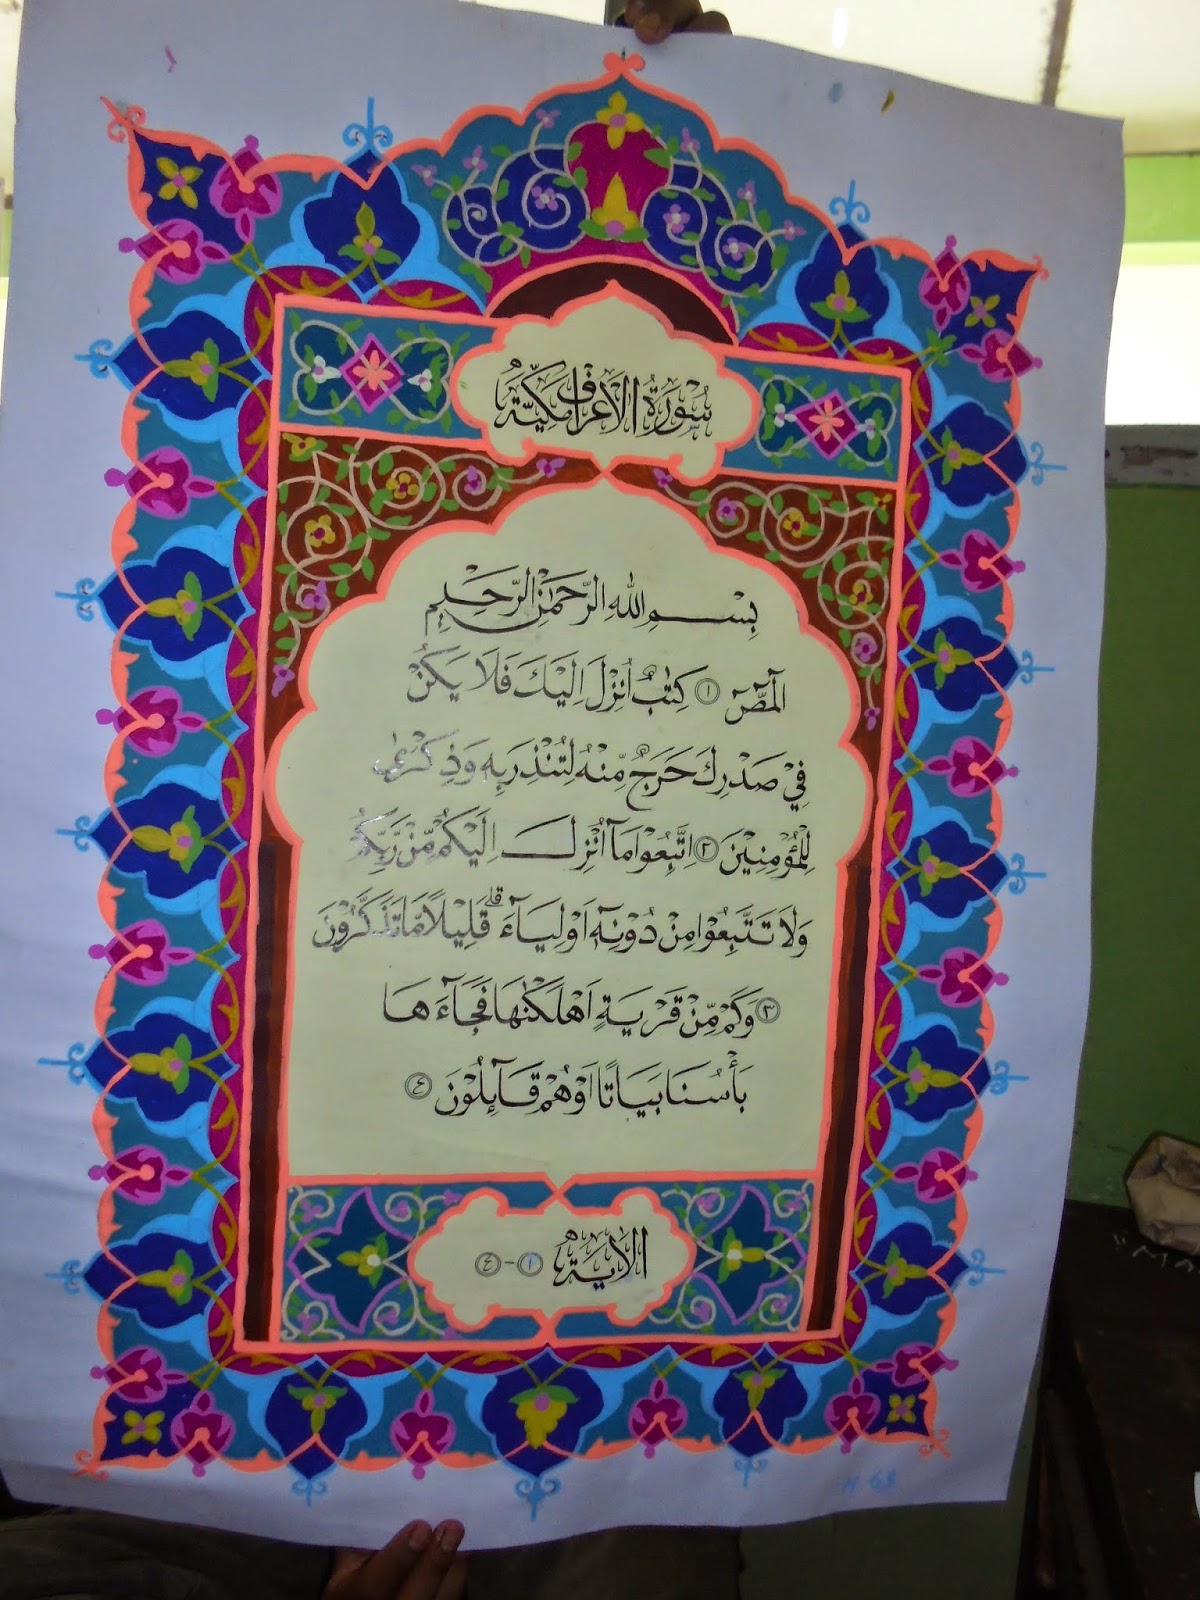 سُوْرَةُ الْاَعْرَافِ مَكِّيَّةٌ
بِسْمِ اللهِ الرَّحْمٰنِ الرَّحِيْمِ
الۤمّۤصۤ ۝١ كِتٰبٌ اُنْزِلَ اِلَيْكَ فَلَا يَكُنْ
فِيْ صَدْرِكَ حَرَجٌ مِّنْهُ لِتُنْذِرَ بِهٖ وَذِكْرٰى
لِلْمُؤْمِنِيْنَ ۝٢ اِتَّبِعُوْا مَآ اُنْزِلَ اِلَيْكُمْ مِّنْ رَّبِّكُمْ
وَلَا تَتَّبِعُوْا مِنْ دُوْنِهٖٓ اَوْلِيَاۤءَ ۗ قَلِيْلًا مَّا تَذَكَّرُوْنَ
۝٣ وَكَمْ مِّنْ قَرْيَةٍ اَهْلَكْنٰهَا فَجَاۤءَهَا
بَأْسُنَا بَيَاتًا اَوْ هُمْ قَاۤىِٕلُوْنَ ۝٤
الْاٰيَةُ ١ - ٤